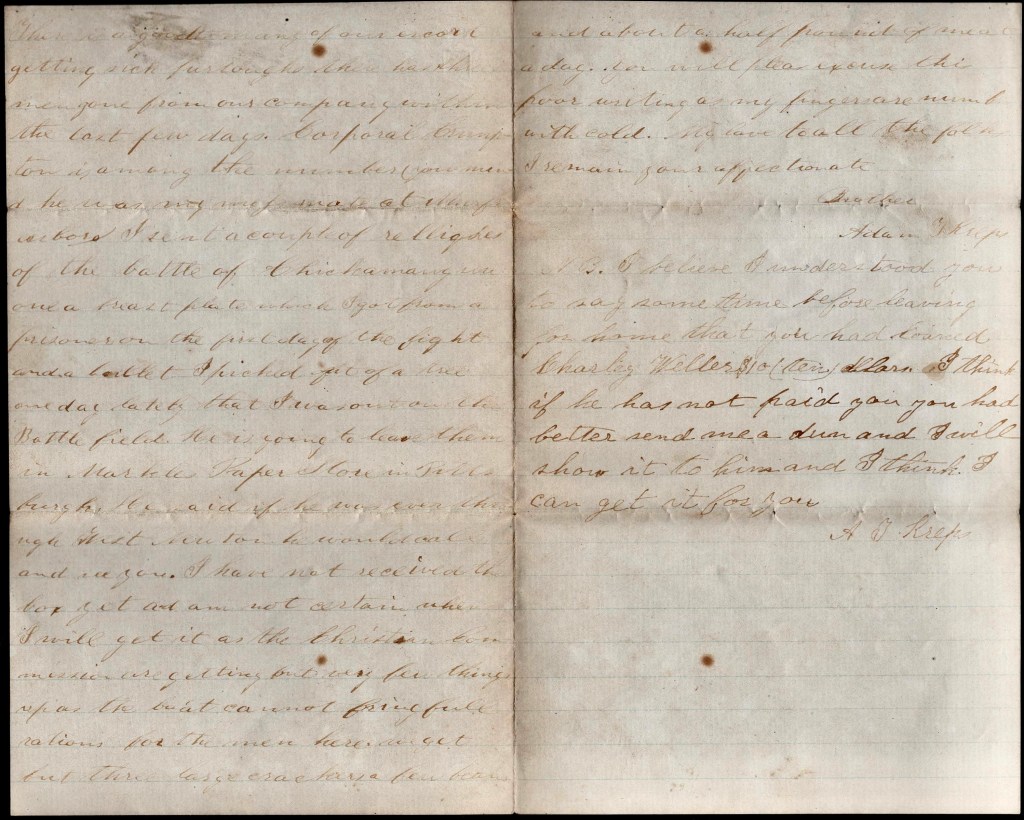 There is a good many of our
getting sick furloughs there has three
men gone from our company within
the last few days. Corporal Crump
ton is among the number (you
d he was my mess mate at Murf
resboro I sent a couple of reliques
of the battle of Chickamaugua
one a breast plate which I got from a
prisoner on the first day of the fight
and a bullet I picked out of a tree
one day lately that I was out on the
Battle field. He is going to leave them
in Markles Paper Store in Pitts
burgh. He said if he was ever thro
ugh West Newton he would call
and see you. I have not received the
box yet ad am not certain when
I will get it as the Christian Com
mission are getting but very few things
up as the boat cannot bring full
rations for the men here. we get
but three large crackers a few beans
and about a half pound of meat
a day. You will pleas excuse this
poor writing as my fingers are numb
with cold. My love to all the folks
I remain your affectionate
Brother
Adam Kreps
N.B. I believe I understood you
to say some time before leaving
for home that you had loaned
Charley Weller $10 (ten) dllars I think
if he has not paid you you had
better send me a dun and I will
show it to him and I think I
can get it for you
A T Kreps